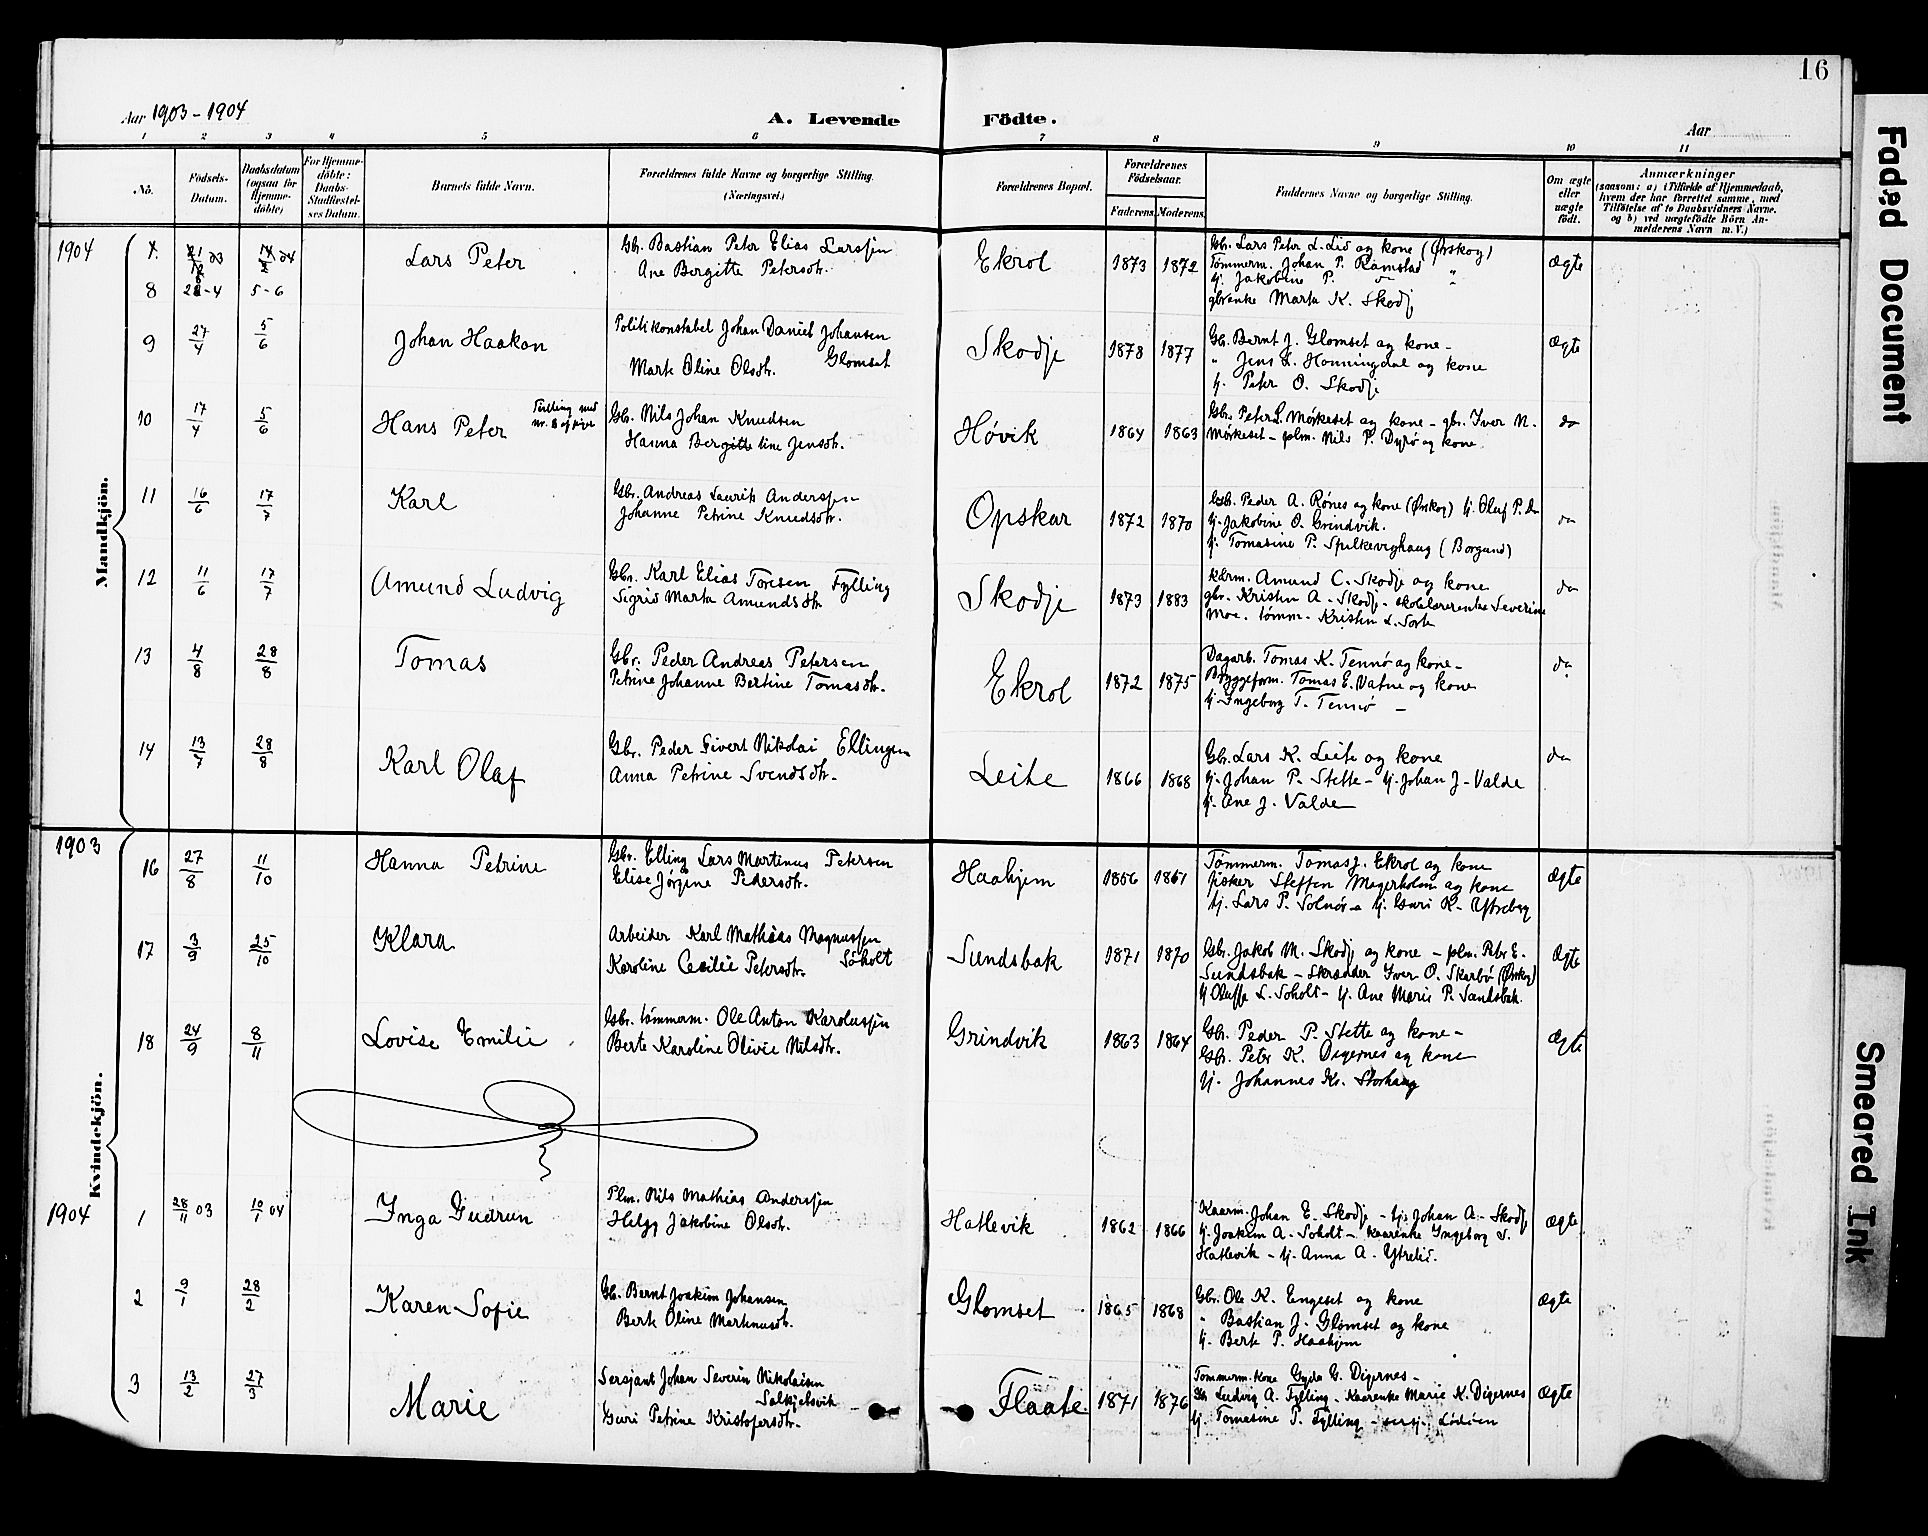 16
Aar 1903-1904
A. Levende Födte.
Aar
1 2 3 4 5 6 7 8 9 10 11
No.
Födsels-Datum.
Daabsdatum (ogsaa for Hjemme-döbte)
For Hjemme-döbte: Daabs-Stadfæstel-ses Datum.
Barnets fulde Navn.
Forældrenes fulde Navne og borgerlige Stilling. (Næringsvei.)
Forældrenes Bopæl.
Forældrenes Födselsaar.
Faderens Moderens
Faddernes Navne og borgerlige Stilling.
Om ægte eller uægte födt.
Anmærkninger
(saasom: a) i Tilfælde af Hjemmedaab,
hvem der har forrettet samme, med
Tilföielse af to Daabsvidners Navne.
og b) ved uægtefödte Börn An-
melderens Navn m. V.)
Mandkjön.
1904
8 5-6 Lars Peter
Gbr. Bastian Peter Elias Larssen
Ane Bergitte Petersdtr.
Ekrol 1873 1872
Gbr. Lars Peter L. Lid og kone (Ørskog)
Tømmerm. Johan P. Ramstad "
tj. Jakobine P.
gbrenke Marta K. Skodj
Ægte
9 27/4 5/6 Johan Haakon
Politikonstabel Johan Daniel Johansen
Glomset
Marte Oline Olsdtr.
Skodje 1878 1877
Gbr. Bernt J. Glomset og kone -
" Jens L. Honningdal og kone
tj. Peter O. Skodje
Ægte
10 17/4 5/6 Hans Peter
Tvilling med
nr. 8 af piger
Gbr. Nils Johan Knudsen
Hanna Bergitte line Jensdtr.
Høvik 1864 1863
Gbr. Peter L. Mørkeset og kone - gbr. Iver N.
Mørkeset - plm. Nils P. Dyrø og kone
do
11 16/6 17/7 Karl
Gbr. Andreas Laurits Anderssen
Johanne Petrine Knudsdtr.
Opskar 1872 1870
Gbr. Peder A. Rønes og kone (Ørskog) tj. Oluf P. do
tj. Jakobine O. Grindvik.
tj. Tomasine P. Spilkevighaug (Borgund)
do
12 11/6 17/7 Amund Ludvig
Gbr. Karl Elias Toresen Fylling
Sigrid Marta Amundsdtr
Skodje 1873 1883
Kårm. Amund C. Skodje og kone
gbr. Kristen A. Skodje - skolelærerenke Severine
Moe. tømm. Kristen L. Sorte
do
13 4/8 28/8 Tomas
Gbr. Peder Andreas Petersen
Petrine Johanne Bertine Tomasdtr.
Ekrol 1872 1875
Dagarb. Tomas K. Tennø og kone -
Byggeform. Tomas E. Vatne og kone
tj. Ingeborg T. Tennø -
do
14 13/7 28/8 Karl Olaf
Gbr. Peder Sivert Nikolai Ellingsen
Anna Petrine Svendsdtr.
Leite 1866 1868
Gbr. Lars K. Leite og kone
tj. Johan P. Stette - tj. Johan J. Valde
tj. Ane J. Valde
do
Kvindekjön.
1903
16 27/8 11/10 Hanna Petrine
Gbr. Elling Lars Martinus Petersen
Elise Jørgine Pedersdtr.
Haahjem 1856 1861
Tømmerm. Tomas J. Ekrol og kone
fisker Steffen Magerholm og kone
tj. Lars P. Solnør - tj. Guri K. Ytreberg
Ægte
17 3/9 25/10 Klara
Arbeider Karl Mathias Magnussen
Søholt
Karoline Cecilie Petersdtr.
Sundsbak 1871 1870
Gbr. Jakob M. Skodje og kone - plm. Peter E.
Sundsbak - Skrædder Iver O. Skarbø (Ørskog)
tj Oluffa L. Soholt - tj. Ane Marie P. Sundsbak.
Ægte
18 24/9 8/11 Lovise Emilie
Gbr. tømmerm. Ole Anton Karolussen
Berte Karoline Olivie Nilsdtr.
Grindvik 1863 1864
Gbr. Peder P. Stette og kone -
Gbr. Peter K. Digernes og kone
tj. Johannes Kr. Storhaug
Ægte
1904
1 28/11 03 10/1 04 Inga Gudrun
Plm. Nils Mathias Anderssen
Helga Jakobine Olsdtr.
Hatlevik 1862 1866
Kaarm. Johan E. Skodje - tj. Johan A. Skodje
tj. Joakim A. Soholt - Kaarenke Ingeborg S.
Hatlevik - tj. Anna A. Ytrelid.
Ægte
2 9/1 28/2 Karen Sofie
Gbr. Bernt Joakim Johansen
Berte Oline Martinusdtr.
Glomset 1865 1868
Gbr. Ole K. Engeset og kone
" Bastian J. Glomset og kone
tj. Berte P. Haahjem
Ægte
3 13/2 27/3 Marie
Sersjant Johan Severin Nikolaisen
Solkjelsvik
Guri Petrine Kristofersdtr.
Flaate 1871 1876
Tømmerm.kone Gyda G. Digernes -
Gbr Ludvig A. Fylling - Kaarenke Marie K. Digernes
tj. Tomasine P. Fylling - sersj. Lødøen
Ægte
Faded Document
Smeared Ink